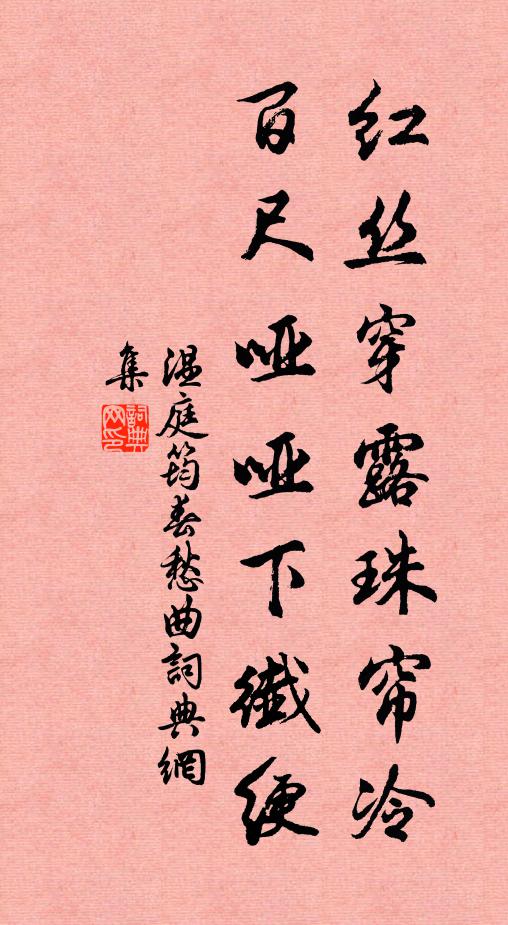 红丝穿露珠帘冷
百尺哑哑下纖绠
温庭筠春愁曲詞典網
集
詞典网印